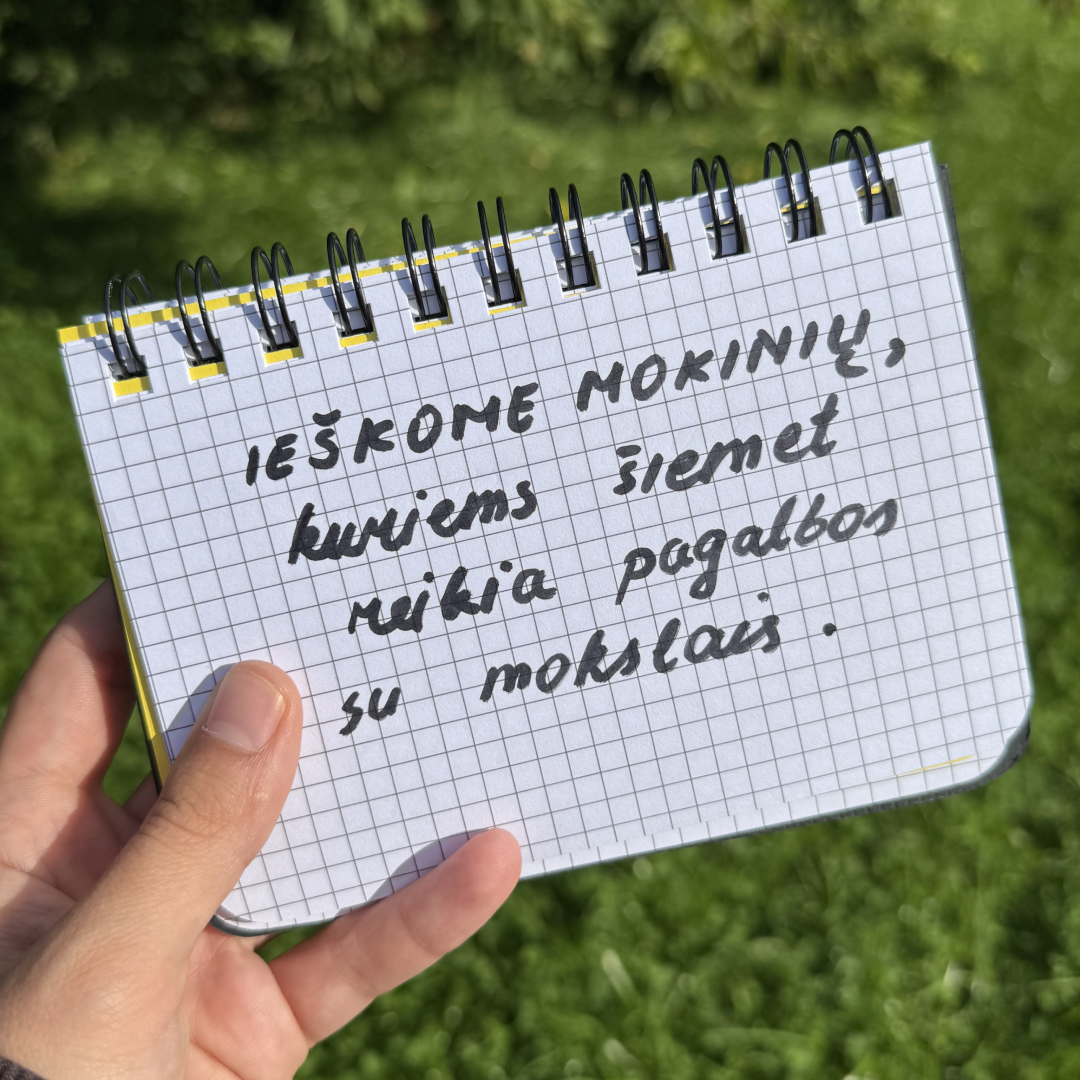 IEŠKOME MOKINIŲ,
kuriems šiemet
reikia pagalbos
su mokslais.